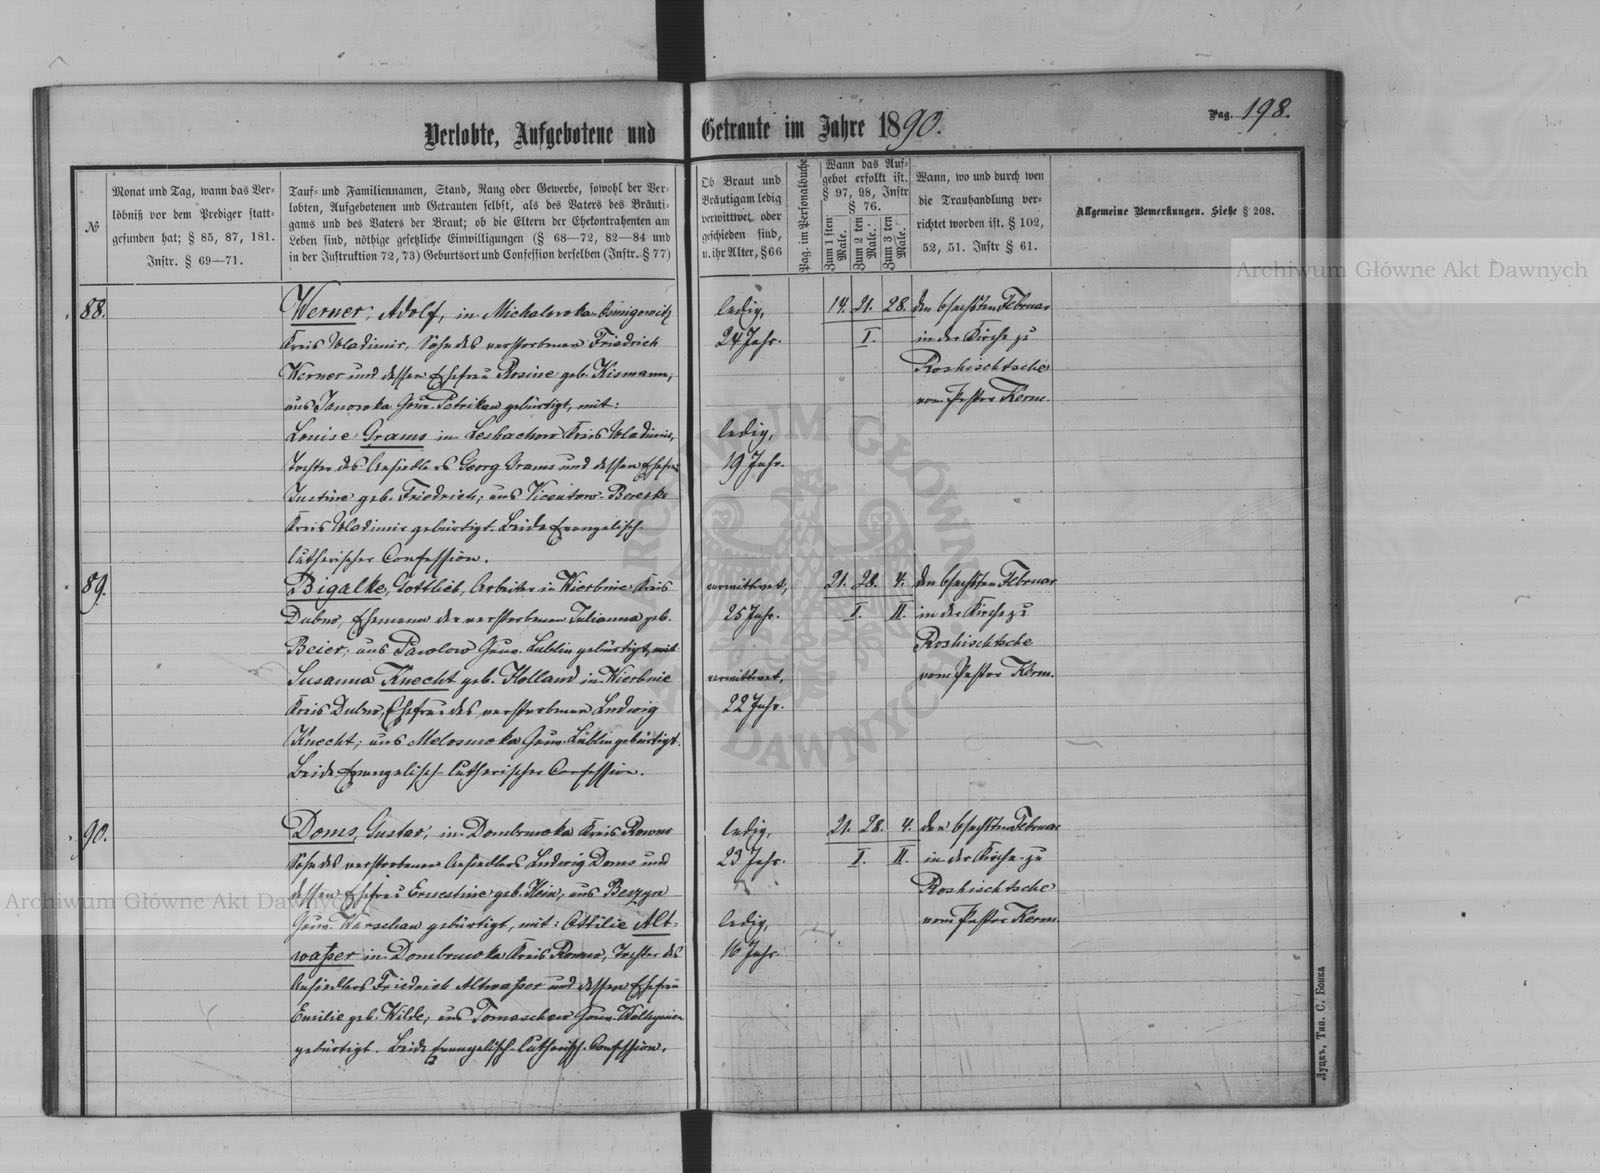 Verlobte, Aufgebotene und Getraute im Jahre 1890.
Pag. 198.
№
Monat und Tag, wann das Ver-
löbniß vor dem Prediger statt-
gefunden hat; § 85, 87, 181.
Instr. § 69—71.
Tauf- und Familiennamen, Stand, Rang oder Gewerbe, sowohl der Ver-
lobten, Aufgebotenen und Getrauten selbst, als des Vaters des Bräuti-
gams und des Vaters der Braut; ob die Eltern der Ehekontrahenten am
Leben sind, nöthige gesetzliche Einwilligungen (§ 68—72, 82—84 und
in der Instruktion 72, 73) Geburtsort und Confession derselben (Instr. § 77)
Ob Braut und
Bräutigam ledig
verwittwet oder
geschieden sind,
u. ihr Alter, § 66
Pag. im Personalbuche
Wann das Auf-
gebot erfolgt ist.
§ 97, 98, Instr
§ 76.
Zum 1 sten
Male.
Zum 2 ten
Male.
Zum 3 ten
Male.
Wann, wo und durch wen
die Trauhandlung ver-
richtet worden ist. § 102,
52, 51. Instr § 61.
Allgemeine Bemerkungen. Siehe § 208.
88.
Werner, Adolf, in Michalowka
Kreis Wladimir, Sohn des verstorbenen Friedrich
Werner und dessen Ehefrau Rosine geb. Kismann,
aus Janowka Gouv. Petrikau gebürtigt, mit:
Louise Grams in Leshachow Kreis Wladimir,
Tochter des Ansiedlers Georg Grams und dessen Ehefrau
Justine geb. Friedrich; aus Vicentow-Bereske
Kreis Wladimir gebürtigt. Beide Evangelisch-
lutherischer Confession.
ledig,
24 Jahr.
ledig,
19 Jahr.
14. 21. 28.
I.
den 6 sechsten Februar
in der Kirche zu
Roshischtsche
vom Pastor Kerm.
89.
Bigalke, Gottlieb, Arbeiter in Wierbnie Kreis
Dubno, Ehemann der verstorbenen Julianna geb.
Beier, aus Pawlow Gouv. Lublin gebürtigt, mit
Susanna Knecht geb. Holland in Wierbnie
Kreis Dubno, Ehefrau des verstorbenen Ludwig
Knecht; aus Melosnoka Gouv. Lublin gebürtigt.
Beide Evangelisch-lutherischer Confession.
verwittwet,
25 Jahr.
verwittwet,
22 Jahr.
21. 28. 4.
I. II.
den 6 sechsten Februar
in der Kirche zu
Roshischtsche
vom Pastor Kerm.
90.
Doms, Gustav, in Dombrowka Kreis Rowno
Sohn des verstorbenen Ansiedlers Ludwig Doms und
dessen Ehefrau Ernestine geb. Klein, aus Beszyn
Gouv. Warschau gebürtigt, mit: Ottilie Alt-
waßer in Dombrowka Kreis Rowno, Tochter des
Ansiedlers Friedrich Altwaßer und dessen Ehefrau
Emilie geb. Wilde, aus Tomaschew Gouv. Wolhynien
gebürtigt. Beide Evangelisch-lutherisch. Confession.
ledig,
23 Jahr.
ledig,
16 Jahr.
21. 28. 4.
I. II.
den 6 sechsten Februar
in der Kirche zu
Roshischtsche
vom Pastor Kerm.
Луцкъ, Тип. С. Бонка
Archiwum Główne Akt Dawnych
Archiwum Główne Akt Dawnych
ARCHIWUM GŁÓWNE AKT DAWNYCH